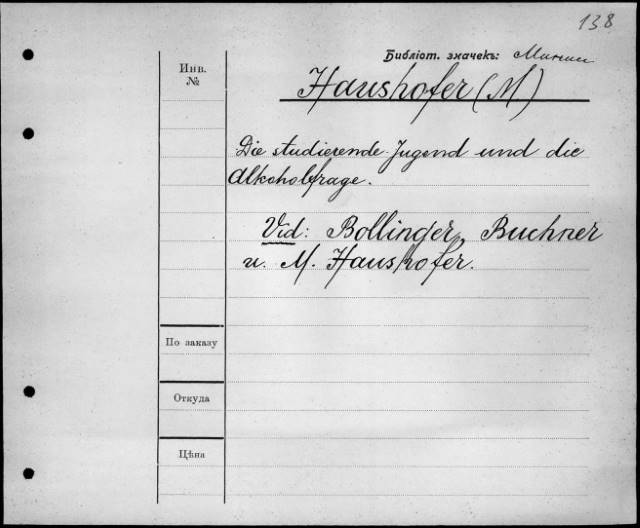 138
Библіот. значекъ:
Инв.
№
Haushofer (M)
Die studierende Jugend und die
Alkoholfrage.
Vid: Bollinger, Buchner
u. M. Haushofer.
По заказу
Откуда
Цѣна